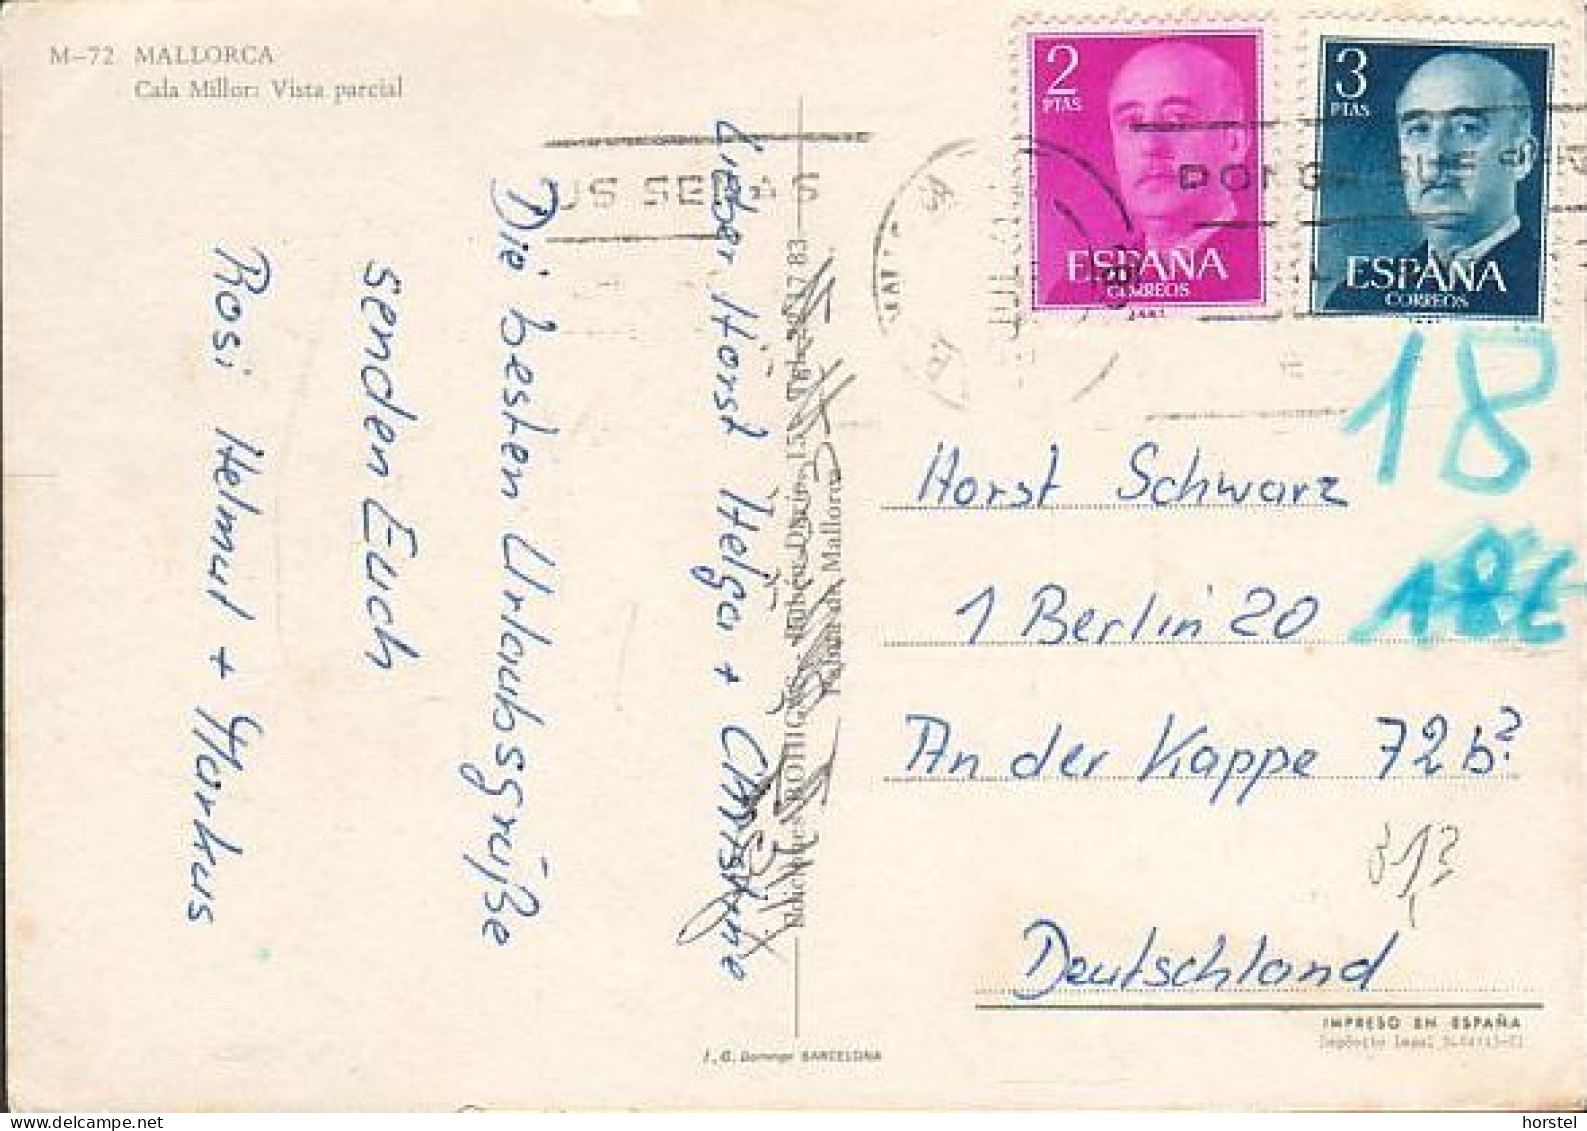 M-72 MALLORCA
Cala Millor: Vista parcial
2
PTAS
ESPAÑA
CORREOS
3
PTAS
ESPAÑA
CORREOS
PONGA
US SEÑAS
JUL
Lieber Horst Helga + Christine
Die besten Urlaubsgrüße
senden Euch
Rosi Helmut + Markus
18
Horst Schwarz
1 Berlin 20
186
An der Kappe 72b?
313
Deutschland
IMPRESO EN ESPAÑA
Palma de Mallorca
J. G. Domingo BARCELONA
horstel